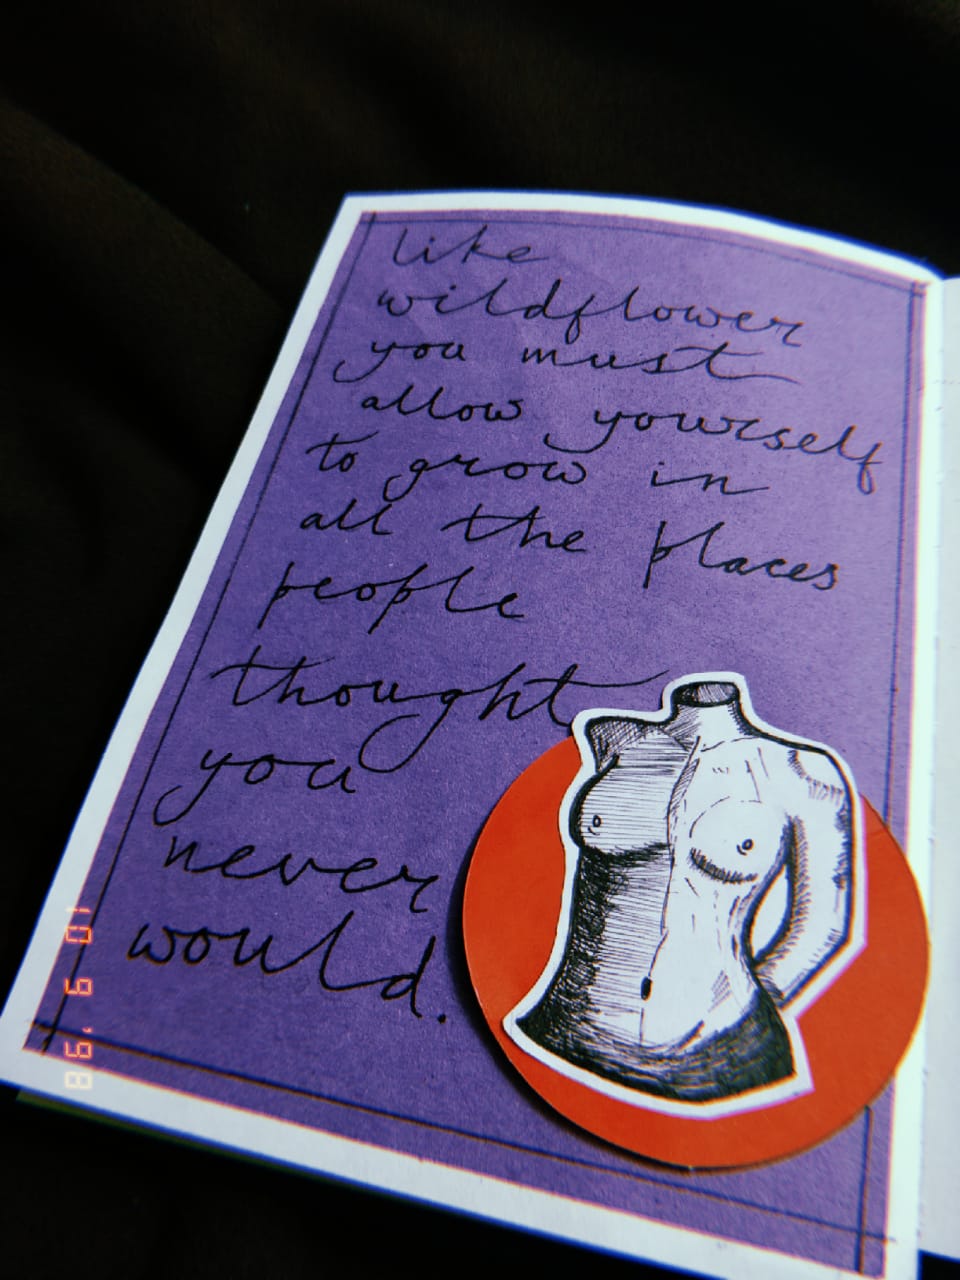 like
wildflower
you must
allow yourself
to grow in
all the places
people
thought
you
never
would.
10 9 '98